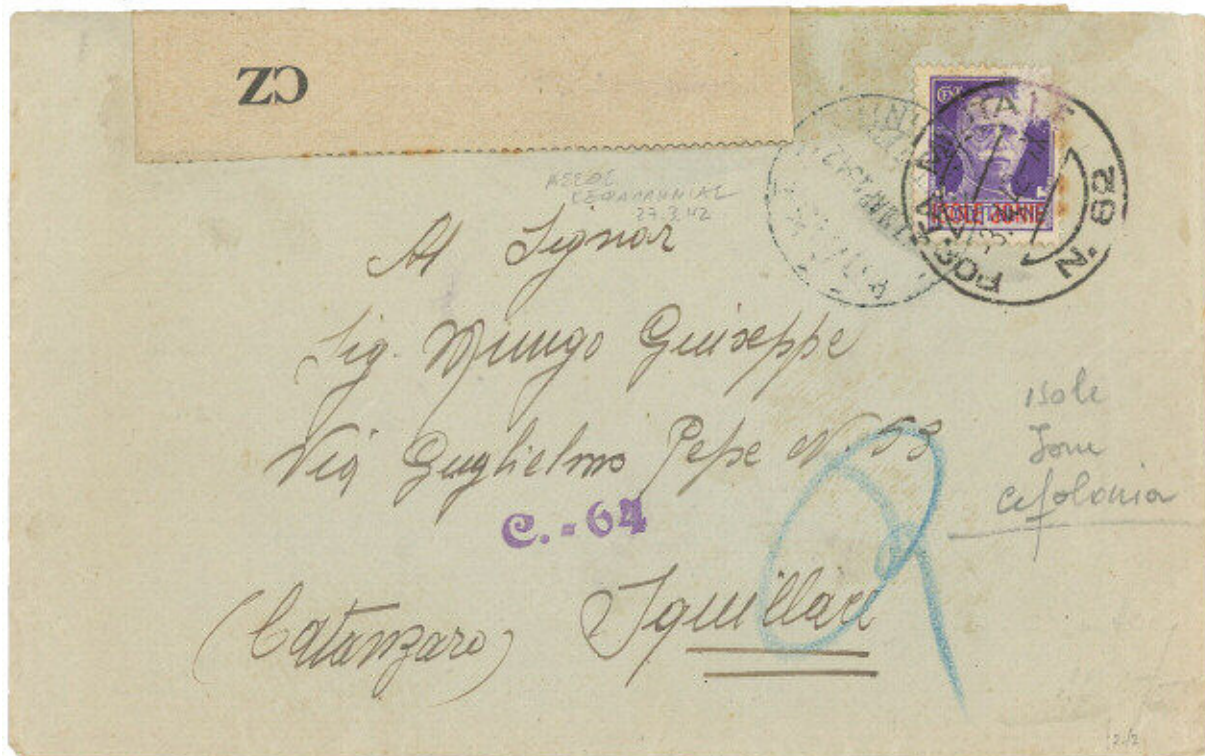 CZ
POSTA MILITARE
N. 82
ISOLE JONIE
27.3.42
Al Signor
Sig. Mungo Giuseppe
Via Guglielmo Pepe N. 53
C.-64
(Catanzaro) Squillace
isole
Jonie
Cefalonia